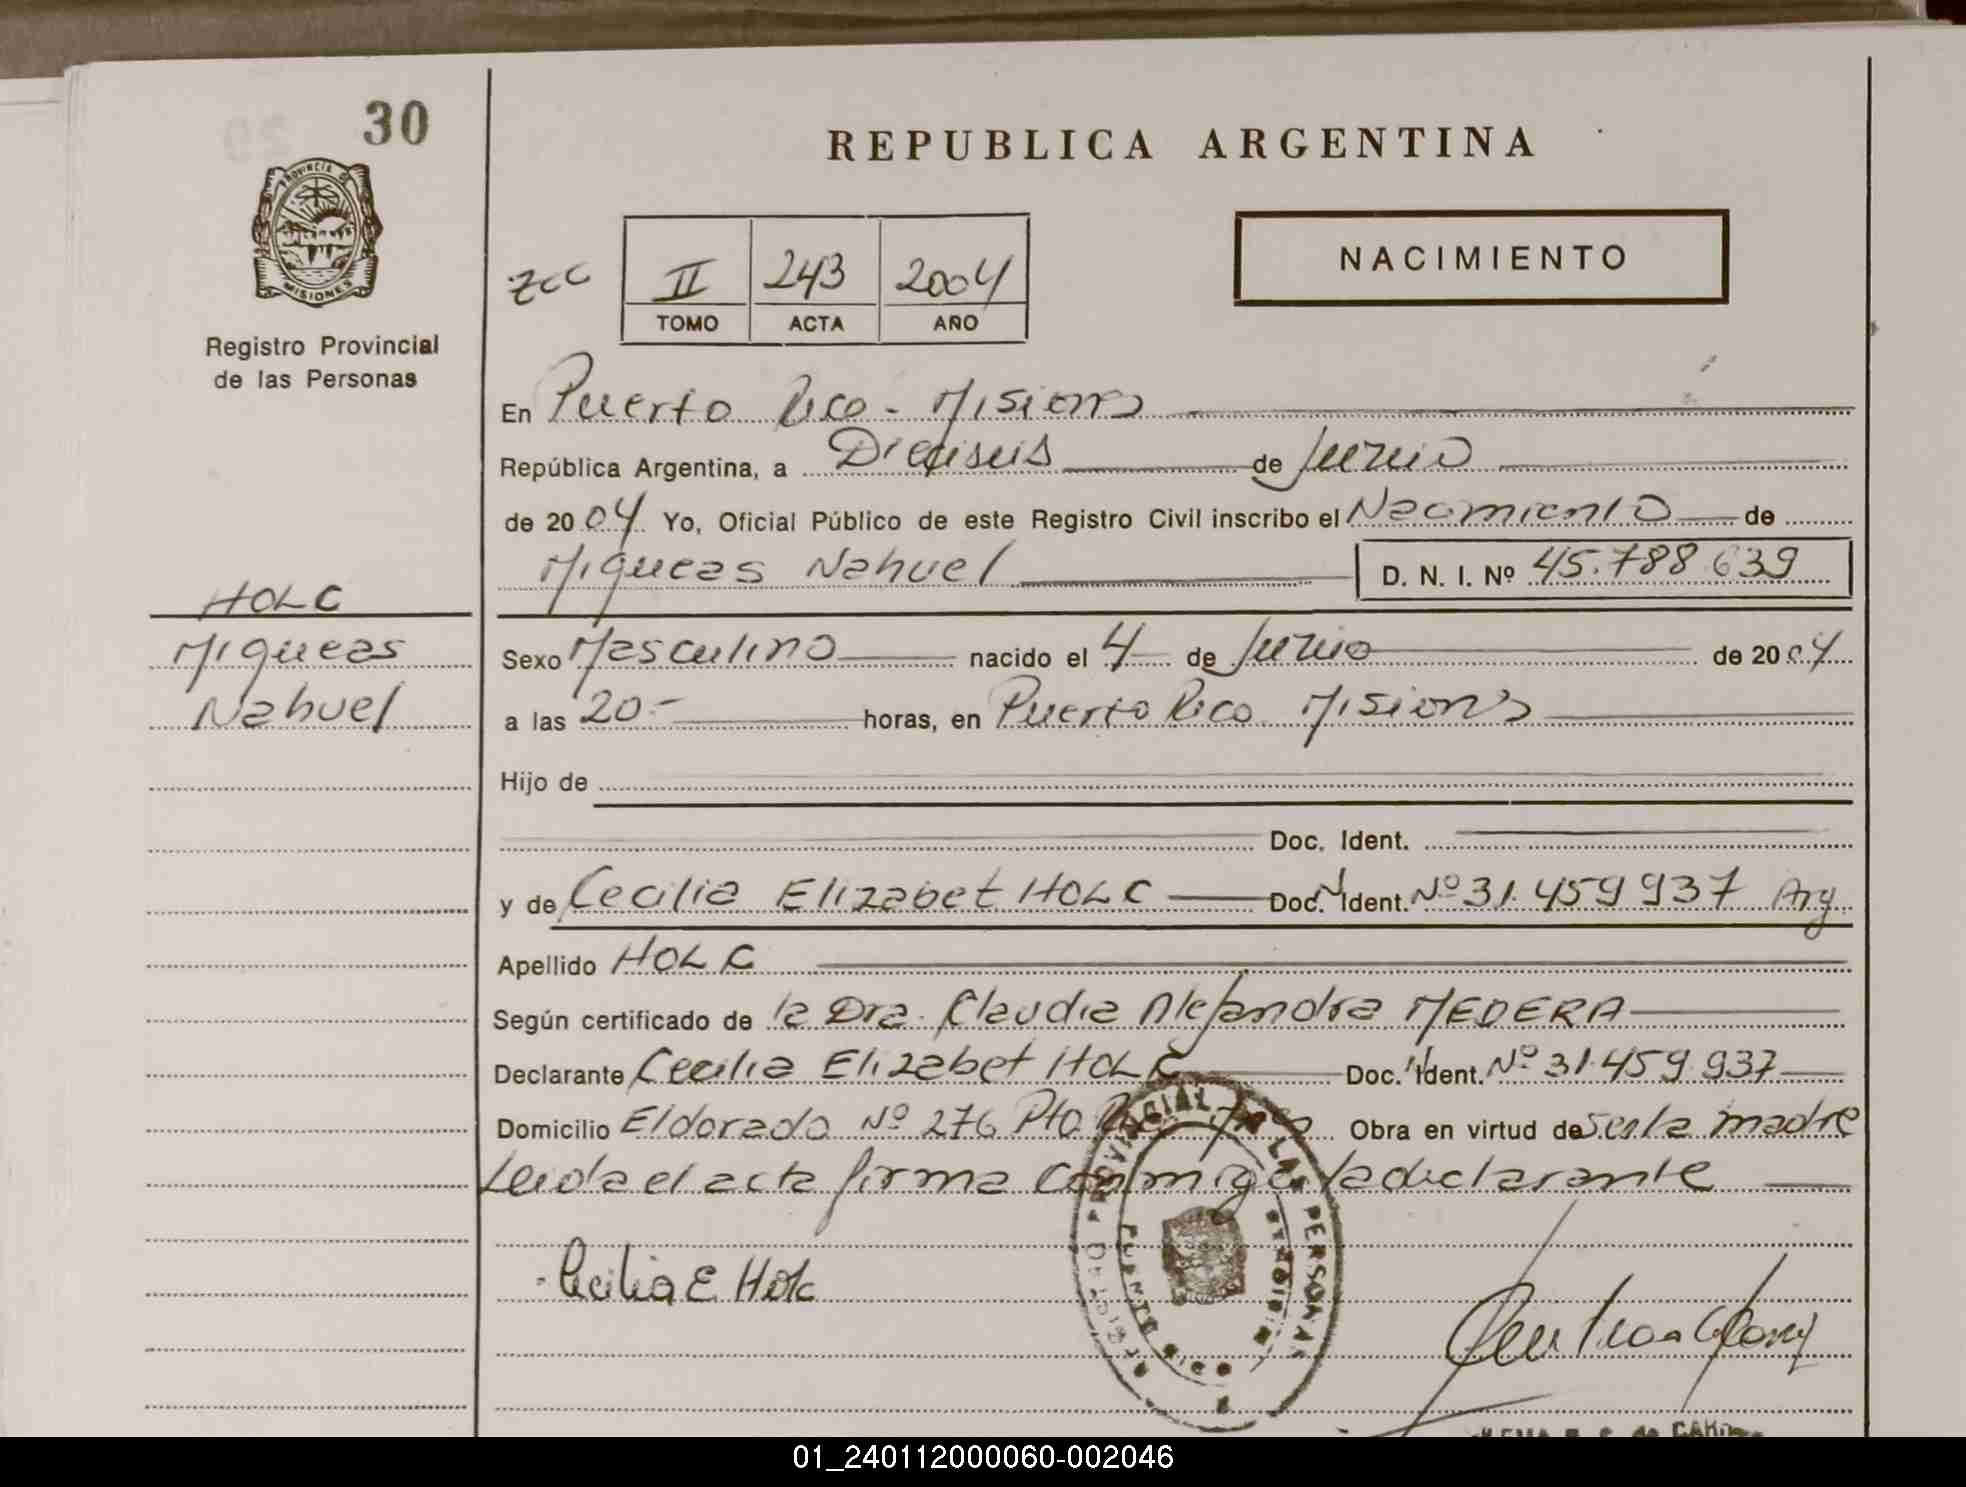 30
REPUBLICA ARGENTINA
PROVINCIA DE
MISIONES
Registro Provincial
de las Personas
II 243 2004
TOMO ACTA AÑO
NACIMIENTO
En Puerto Rico - Misiones
República Argentina, a Dieciseis de Junio
de 2004 Yo, Oficial Público de este Registro Civil inscribo el Nacimiento de
Miqueas Nahuel D. N. I. Nº 45.788.639
HOLC
Miqueas
Nahuel
Sexo Masculino nacido el 4 de Junio de 2004
a las 20.- horas, en Puerto Rico Misiones
Hijo de
Doc. Ident.
y de Cecilia Elizabet HOLC Doc. Ident. Nº 31.459.937 Arg.
Apellido HOLC
Según certificado de la Dra. Claudia Alejandra MEDERA
Declarante Cecilia Elizabet HOLC Doc. Ident. Nº 31.459.937
Domicilio Eldorado Nº 276 Pto Rico Obra en virtud de ser la madre
Leida el acta firma conmigo la declarante
Cecilia E. Holc
PROVINCIAL DE LAS PERSONAS
PUERTO RICO MISIONES
01_240112000060-002046